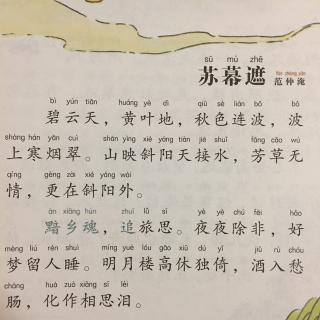 sū mù zhē
苏幕遮 范仲淹
fàn zhòng yān
bì yún tiān huáng yè dì qiū sè lián bō bō
碧云天，黄叶地，秋色连波，波
shàng hán yān cuì shān yìng xié yáng tiān jiē shuǐ fāng cǎo wú
上寒烟翠。山映斜阳天接水，芳草无
qíng gèng zài xié yáng wài
情，更在斜阳外。
àn xiāng hún zhuī lǚ sī yè yè chú fēi hǎo
黯乡魂，追旅思。夜夜除非，好
mèng liú rén shuì míng yuè lóu gāo xiū dú yǐ jiǔ rù chóu
梦留人睡。明月楼高休独倚，酒入愁
cháng huà zuò xiāng sī lèi
肠，化作相思泪。